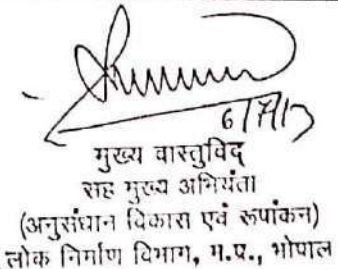 6/7/13
मुख्य वास्तुविद
सह मुख्य अभियंता
(अनुसंधान विकास एवं रूपांकन)
लोक निर्माण विभाग, म.प्र., भोपाल